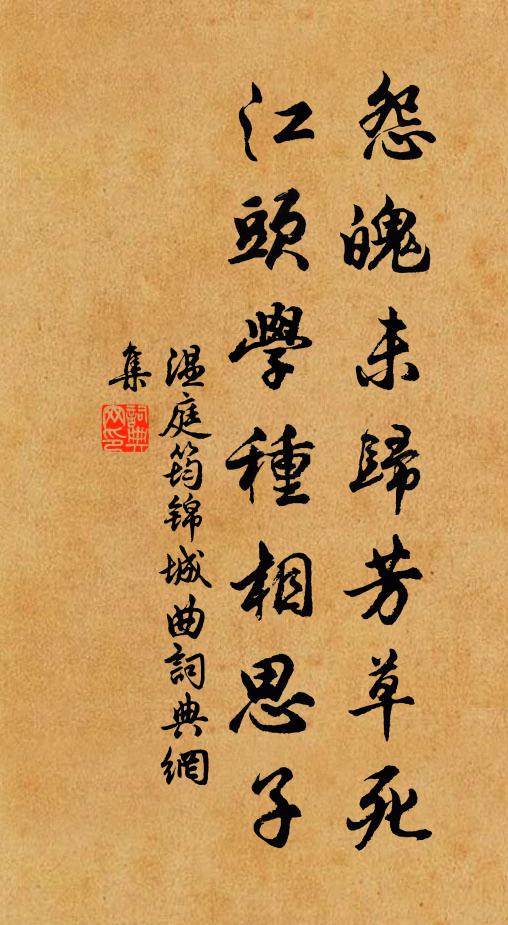 怨魄未歸芳草死
江頭學種相思子
溫庭筠錦城曲詞典網
集
詞典
網印